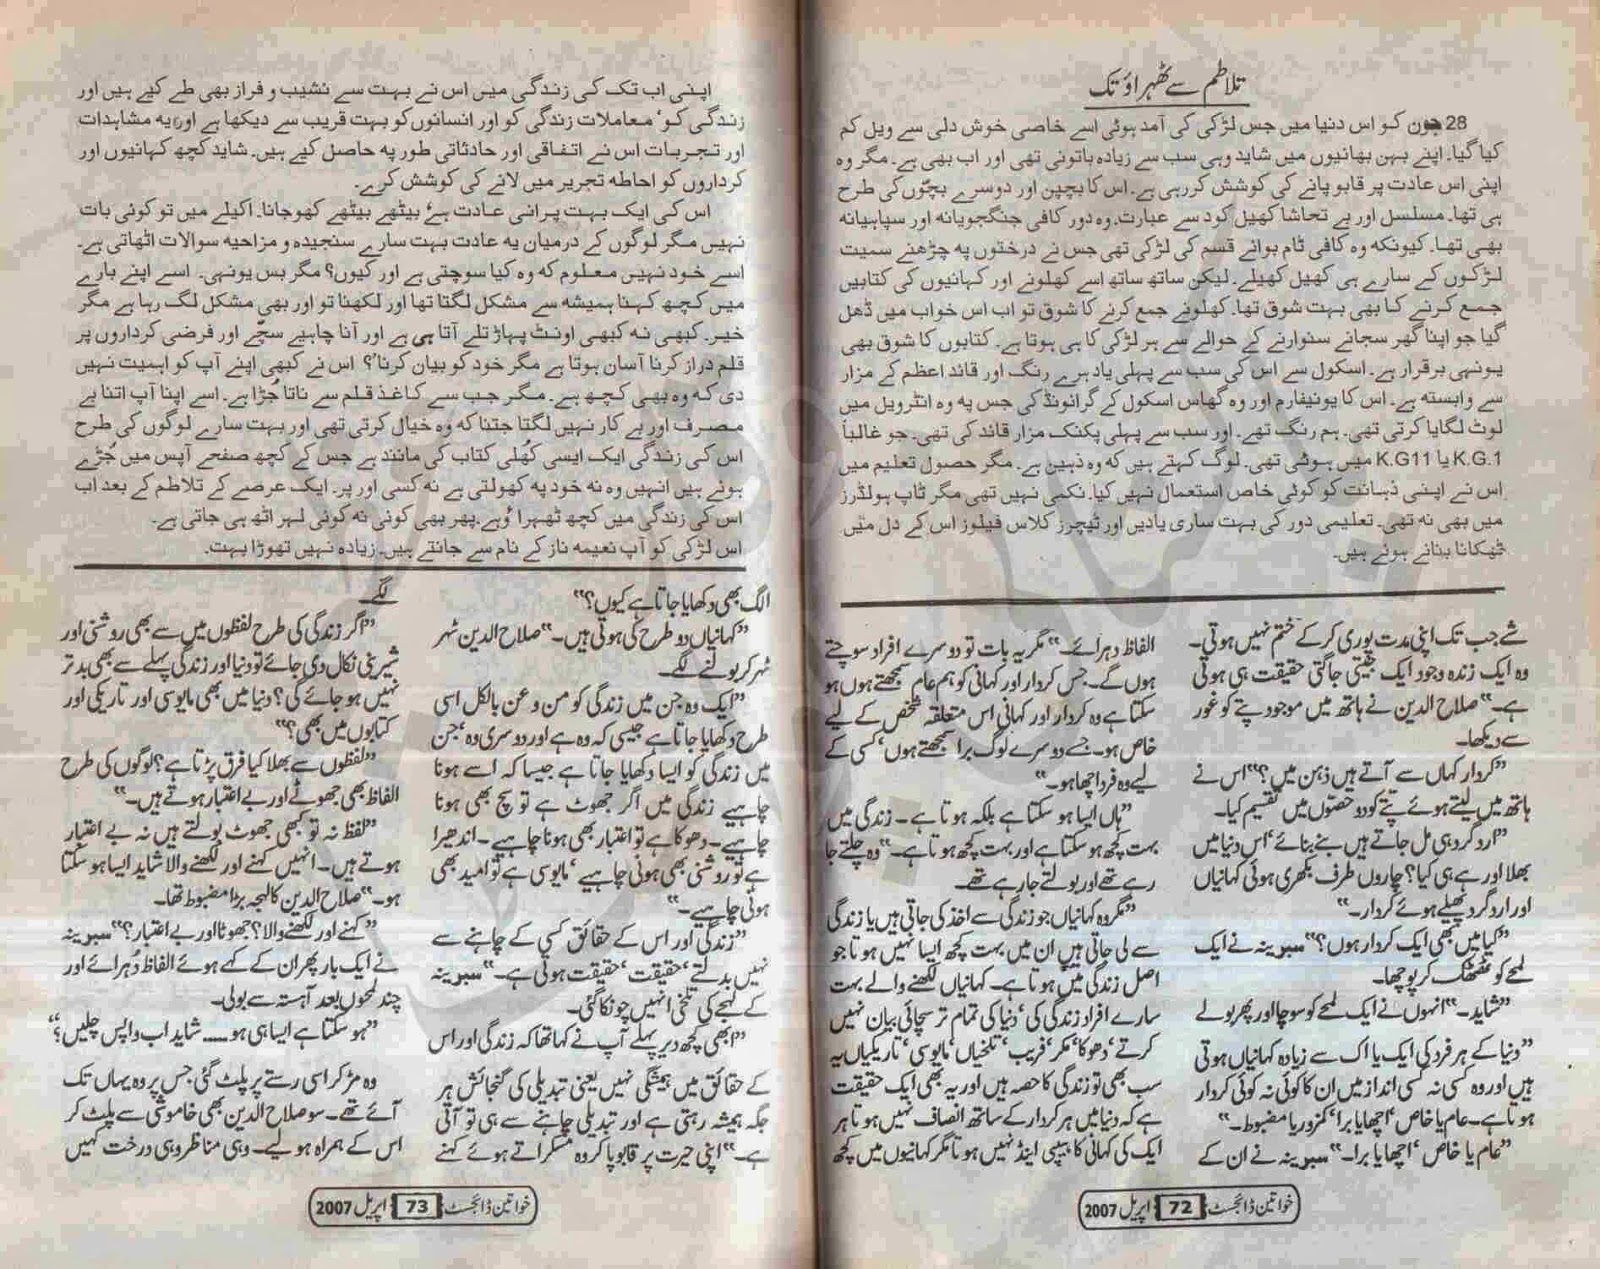 تلاطم سے ٹھہراؤ تک
28 جون کو اس دنیا میں جس لڑکی کی آمد ہوئی اسے خاصی خوش دلی سے ویل کم
کیا گیا۔ اپنے بہن بھائیوں میں شاید وہی سب سے زیادہ باتونی تھی اور اب بھی ہے۔ مگر وہ
اپنی اس عادت پر قابو پانے کی کوشش کررہی ہے۔ اس کا بچپن اور دوسرے بچّوں کی طرح
ہی تھا۔ مسلسل اور بے تحاشا کھیل کود سے عبارت۔ وہ دور کافی جنگجویانہ اور سپاہیانہ
بھی تھا۔ کیونکہ وہ کافی ٹام بوائے قسم کی لڑکی تھی جس نے درختوں پہ چڑھنے سمیت
لڑکوں کے سارے ہی کھیل کھیلے۔ لیکن ساتھ ساتھ اسے کھلونے اور کہانیوں کی کتابیں
جمع کرنے کا بھی بہت شوق تھا۔ کھلونے جمع کرنے کا شوق تو اب اس خواب میں ڈھل
گیا جو اپنا گھر سجانے سنوارنے کے حوالے سے ہر لڑکی کا ہی ہوتا ہے۔ کتابوں کا شوق بھی
یونہی برقرار ہے۔ اسکول سے اس کی سب سے پہلی یاد ہرے رنگ اور قائد اعظم کے مزار
سے وابستہ ہے۔ اس کا یونیفارم اور وہ گھاس اسکول کے گراؤنڈ کی جس پہ وہ انٹرویل میں
لوٹ لگایا کرتی تھی۔ ہم رنگ تھے۔ اور سب سے پہلی پکنک مزار قائد کی تھی۔ جو غالباً
K.G.1 یا K.G11 میں ہوئی تھی۔ لوگ کہتے ہیں کہ وہ ذہین ہے۔ مگر حصول تعلیم میں
اس نے اپنی ذہانت کو کوئی خاص استعمال نہیں کیا۔ نکمی نہیں تھی مگر ٹاپ ہولڈرز
میں بھی نہ تھی۔ تعلیمی دور کی بہت ساری یادیں اور ٹیچرز کلاس فیلوز اس کے دل میں
ٹھکانا بنائے ہوئے ہیں۔
شے جب تک اپنی مدت پوری کرکے ختم نہیں ہوتی۔
وہ ایک زندہ وجود ایک جیتی جاگتی حقیقت ہی ہوتی
ہے۔" صلاح الدین نے ہاتھ میں موجود پتے کو غور
سے دیکھا۔
"کردار کہاں سے آتے ہیں ذہن میں؟" اس نے
ہاتھ میں لیتے ہوئے پتے کو دو حصوں میں تقسیم کیا۔
"ارد گرد ہی مل جاتے ہیں بنے بنائے' اس دنیا میں
بھلا اور ہے ہی کیا؟ چاروں طرف بکھری ہوئی کہانیاں
اور ارد گرد پھیلے ہوئے کردار۔"
"کیا میں بھی ایک کردار ہوں؟" سبرینہ نے ایک
لمحے کو ٹھٹھک کر پوچھا۔
"شاید۔" انہوں نے ایک لمحے کو سوچا اور پھر بولے
"دنیا کے ہر فرد کی ایک یا اک سے زیادہ کہانیاں ہوتی
ہیں اور وہ کسی نہ کسی انداز میں ان کا کوئی نہ کوئی کردار
ہوتا ہے۔ عام یا خاص' اچھا یا برا' کمزور یا مضبوط۔"
"عام یا خاص' اچھا یا برا۔" سبرینہ نے ان کے
الفاظ دہرائے۔ "مگر یہ بات تو دوسرے افراد سوچتے
ہوں گے۔ جس کردار اور کہانی کو ہم عام سمجھتے ہوں ہو
سکتا ہے وہ کردار اور کہانی اس متعلقہ شخص کے لیے
خاص ہو۔ جسے دوسرے لوگ برا سمجھتے ہوں' کسی کے
لیے وہ فرد اچھا ہو۔"
"ہاں ایسا ہو سکتا ہے بلکہ ہوتا ہے۔ زندگی میں
بہت کچھ ہو سکتا ہے اور بہت کچھ ہوتا ہے۔" وہ چلتے جا
رہے تھے اور بولتے جا رہے تھے۔
"مگر وہ کہانیاں جو زندگی سے اخذ کی جاتی ہیں یا زندگی
سے لی جاتی ہیں ان میں بہت کچھ ایسا نہیں ہوتا جو
اصل زندگی میں ہوتا ہے۔ کہانیاں لکھنے والے بہت
سارے افراد زندگی کی' دنیا کی تمام تر سچائی بیان نہیں
کرتے' دھوکا' مکر' فریب' تلخیاں' مایوسی' تاریکیاں یہ
سب بھی تو زندگی کا حصہ ہیں اور یہ بھی ایک حقیقت
ہے کہ دنیا میں ہر کردار کے ساتھ انصاف نہیں ہوتا ہر
ایک کی کہانی کا ہیپی اینڈ نہیں ہوتا مگر کہانیوں میں کچھ
خواتین ڈائجسٹ 72 اپریل 2007
اپنی اب تک کی زندگی میں اس نے بہت سے نشیب و فراز بھی طے کیے ہیں اور
زندگی کو' معاملات زندگی کو اور انسانوں کو بہت قریب سے دیکھا ہے اور یہ مشاہدات
اور تجربات اس نے اتفاقی اور حادثاتی طور پہ حاصل کیے ہیں۔ شاید کچھ کہانیوں اور
کرداروں کو احاطہ تحریر میں لانے کی کوشش کرے۔
اس کی ایک بہت پرانی عادت ہے' بیٹھے بیٹھے کھو جانا۔ اکیلے میں تو کوئی بات
نہیں مگر لوگوں کے درمیان یہ عادت بہت سارے سنجیدہ و مزاحیہ سوالات اٹھاتی ہے۔
اسے خود نہیں معلوم کہ وہ کیا سوچتی ہے اور کیوں؟ مگر بس یونہی۔ اسے اپنے بارے
میں کچھ کہنا ہمیشہ سے مشکل لگتا تھا اور لکھنا تو اور بھی مشکل لگ رہا ہے مگر
خیر۔ کبھی نہ کبھی اونٹ پہاڑ تلے آتا ہی ہے اور آنا چاہیے سچّے اور فرضی کرداروں پر
قلم دراز کرنا آسان ہوتا ہے مگر خود کو بیان کرنا؟ اس نے کبھی اپنے آپ کو اہمیت نہیں
دی کہ وہ بھی کچھ ہے۔ مگر جب سے کاغذ قلم سے ناتا جُڑا ہے۔ اسے اپنا آپ اتنا بے
مصرف اور بے کار نہیں لگتا جتنا کہ وہ خیال کرتی تھی اور بہت سارے لوگوں کی طرح
اس کی زندگی ایک ایسی کُھلی کتاب کی مانند ہے جس کے کچھ صفحے آپس میں جُڑے
ہوئے ہیں انہیں وہ نہ خود پہ کھولتی ہے نہ کسی اور پر۔ ایک عرصے کے تلاطم کے بعد اب
اس کی زندگی میں کچھ ٹھہراؤ ہے۔ پھر بھی کوئی نہ کوئی لہر اٹھ ہی جاتی ہے۔
اس لڑکی کو آپ نعیمہ ناز کے نام سے جانتے ہیں۔ زیادہ نہیں تھوڑا بہت۔
الگ بھی دکھایا جاتا ہے کیوں؟"
"کہانیاں دو طرح کی ہوتی ہیں۔" صلاح الدین ٹھہر
ٹھہر کر بولنے لگے۔
"ایک وہ جن میں زندگی کو من و عن بالکل اسی
طرح دکھایا جاتا ہے جیسی کہ وہ ہے اور دوسری وہ' جن
میں زندگی کو ایسا دکھایا جاتا ہے جیسا کہ اسے ہونا
چاہیے زندگی میں اگر جھوٹ ہے تو سچ بھی ہونا
چاہیے۔ دھوکا ہے تو اعتبار بھی ہونا چاہیے۔ اندھیرا
ہے تو روشنی بھی ہونی چاہیے' مایوسی ہے تو امید بھی
ہونی چاہیے۔"
"زندگی اور اس کے حقائق کسی کے چاہنے سے
نہیں بدلتے' حقیقت' حقیقت ہوتی ہے۔" سبرینہ
کے لہجے کی تلخی انہیں چونکا گئی۔
"ابھی کچھ دیر پہلے آپ نے کہا تھا کہ زندگی اور اس
کے حقائق میں ہمیشگی نہیں یعنی تبدیلی کی گنجائش ہر
جگہ ہمیشہ رہتی ہے اور تبدیلی چاہنے سے ہی تو آتی
ہے۔" اپنی حیرت پر قابو پا کر وہ مسکراتے ہوئے کہنے
لگے۔
"اگر زندگی کی طرح لفظوں میں سے بھی روشنی اور
شیرینی نکال دی جائے تو دنیا اور زندگی پہلے سے بھی بدتر
نہیں ہو جائے گی؟ دنیا میں بھی مایوسی اور تاریکی اور
کتابوں میں بھی؟"
"لفظوں سے بھلا کیا فرق پڑتا ہے؟ لوگوں کی طرح
الفاظ بھی جھوٹے اور بے اعتبار ہوتے ہیں۔"
"لفظ نہ تو کبھی جھوٹ بولتے ہیں نہ بے اعتبار
ہوتے ہیں۔ انہیں کہنے اور لکھنے والا شاید ایسا ہو سکتا
ہو۔" صلاح الدین کا لہجہ بڑا مضبوط تھا۔
"کہنے اور لکھنے والا؟ جھوٹا اور بے اعتبار؟" سبرینہ
نے ایک بار پھر ان کے کہے ہوئے الفاظ دُہرائے اور
چند لمحوں بعد آہستہ سے بولی۔
"ہو سکتا ہے ایسا ہی ہو..... شاید اب واپس چلیں؟"
وہ مڑ کر اسی رستے پر پلٹ گئی جس پر وہ یہاں تک
آئے تھے۔ سو صلاح الدین بھی خاموشی سے پلٹ کر
اس کے ہمراہ ہو لیے۔ وہی مناظر وہی درخت کہیں
خواتین ڈائجسٹ 73 اپریل 2007